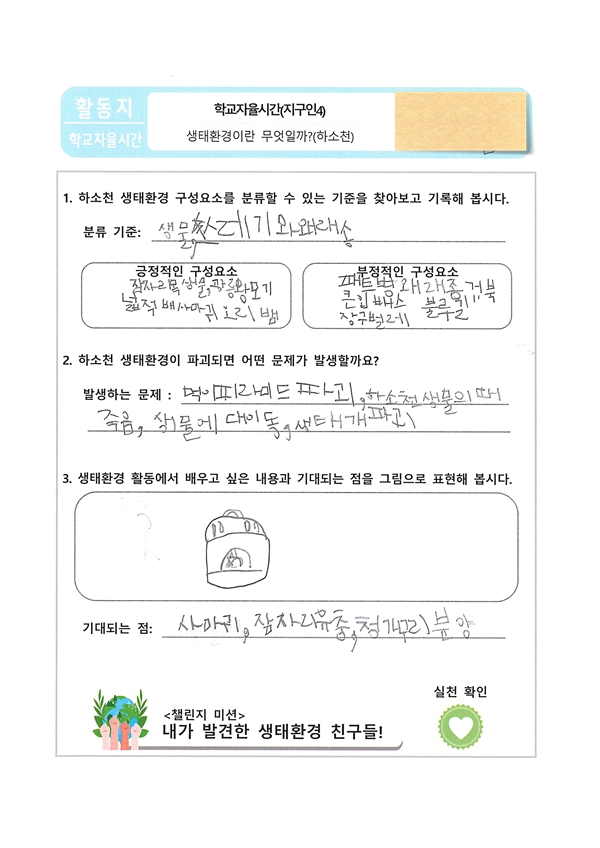 활동지
학교자율시간
학교자율시간(지구인4)
생태환경이란 무엇일까?(하소천)
1. 하소천 생태환경 구성요소를 분류할 수 있는 기준을 찾아보고 기록해 봅시다.
분류 기준: 생물, 쓰레기와 왜래송
긍정적인 구성요소
잠자리목 생물, 광릉왕모기
넓적배사마귀 오리 뱀
부정적인 구성요소
패트병 왜래종 거북
큰입배스 블루길
장구벌레
2. 하소천 생태환경이 파괴되면 어떤 문제가 발생할까요?
발생하는 문제 : 먹이피라미드 파괴, 하소천 생물의 떼
죽음, 생물에 대이동, 생태개 파괴
3. 생태환경 활동에서 배우고 싶은 내용과 기대되는 점을 그림으로 표현해 봅시다.
기대되는 점: 사마귀, 잠자리유충, 청개구리 분양
실천 확인
<챌린지 미션>
내가 발견한 생태환경 친구들!